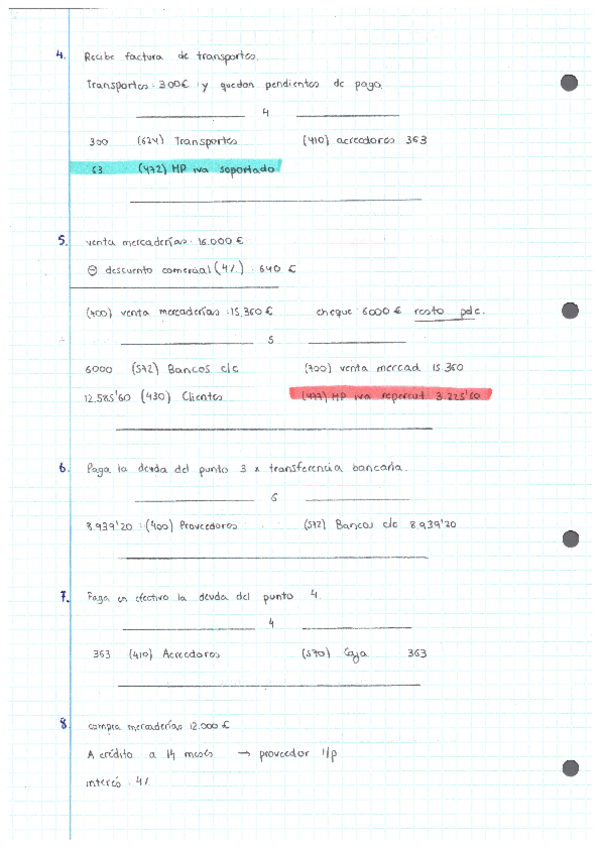 4. Recibe factura de transportes.
Transportes: 300€ y quedan pendientes de pago.
4
300 (624) Transportes (410) acreedores 363
63 (472) HP iva soportado
5. venta mercaderías: 16.000 €
⊖ descuento comercial (4%) : 640 €
(700) venta mercaderías : 15.360 € cheque 6000 € resto pdc.
5
6000 (572) Bancos c/c (700) venta mercad 15.360
12.585'60 (430) Clientes (477) HP iva repercut 3.225'60
6. Paga la deuda del punto 3 x transferencia bancaria.
6
8.939'20 (400) Proveedores (572) Bancos c/c 8.939'20
7. Paga en efectivo la deuda del punto 4.
4
363 (410) Acreedores (570) Caja 363
8. compra mercaderías 12.000 €
A crédito a 14 meses → proveedor l/p
interés 4%